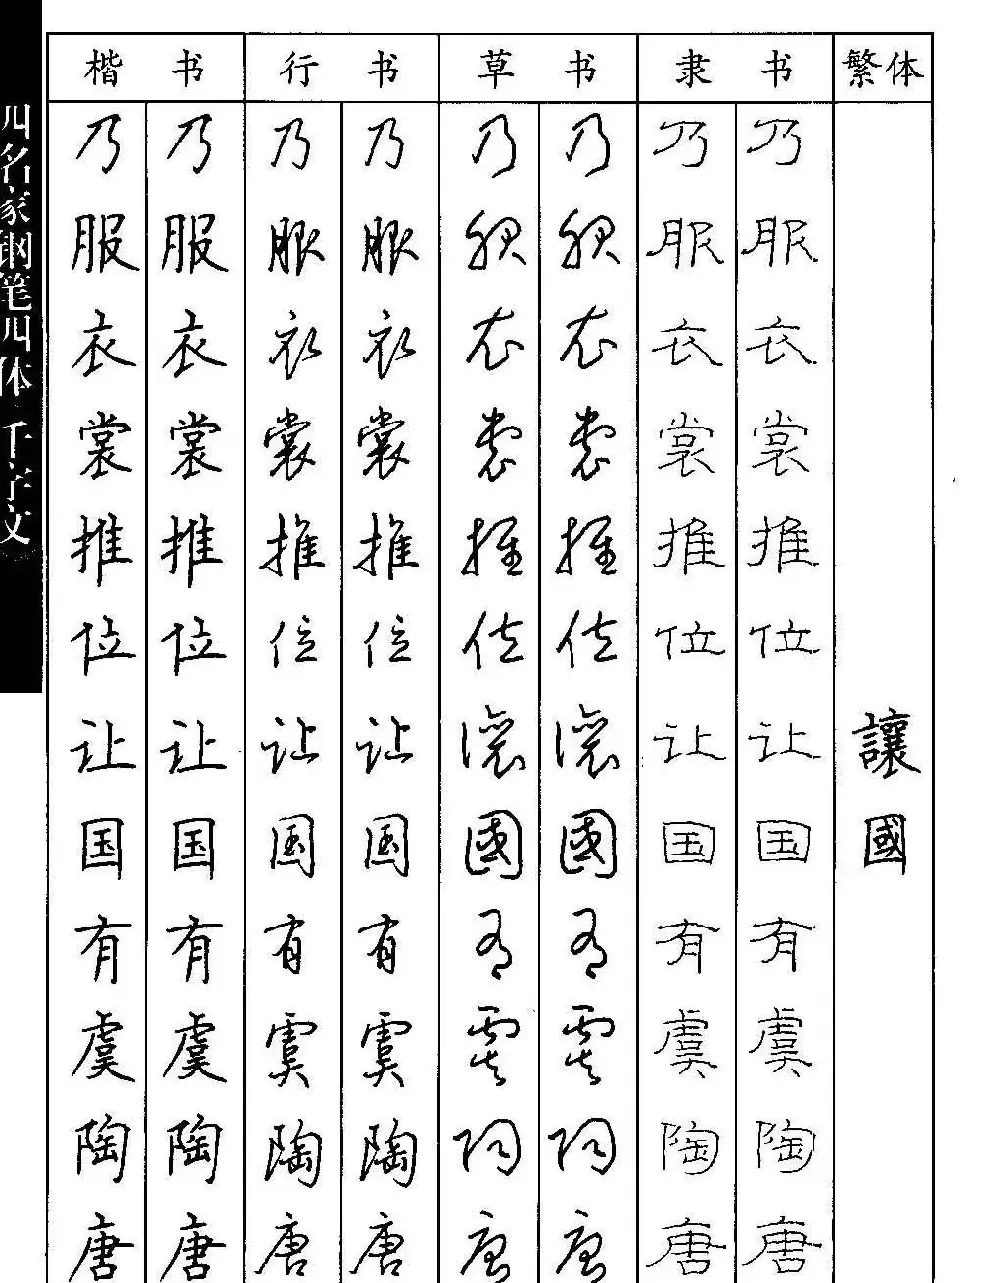 四名家钢笔四体 千字文
楷书 行书 草书 隶书 繁体
乃 乃 乃 乃 乃 乃 乃 乃
服 服 服 服 服 服 服 服
衣 衣 衣 衣 衣 衣 衣 衣
裳 裳 裳 裳 裳 裳 裳 裳
推 推 推 推 推 推 推 推
位 位 位 位 位 位 位 位
让 让 让 让 讓 讓 让 让 讓
国 国 国 国 國 國 国 国 國
有 有 有 有 有 有 有 有
虞 虞 虞 虞 虞 虞 虞 虞
陶 陶 陶 陶 陶 陶 陶 陶
唐 唐 唐 唐 唐 唐 唐 唐